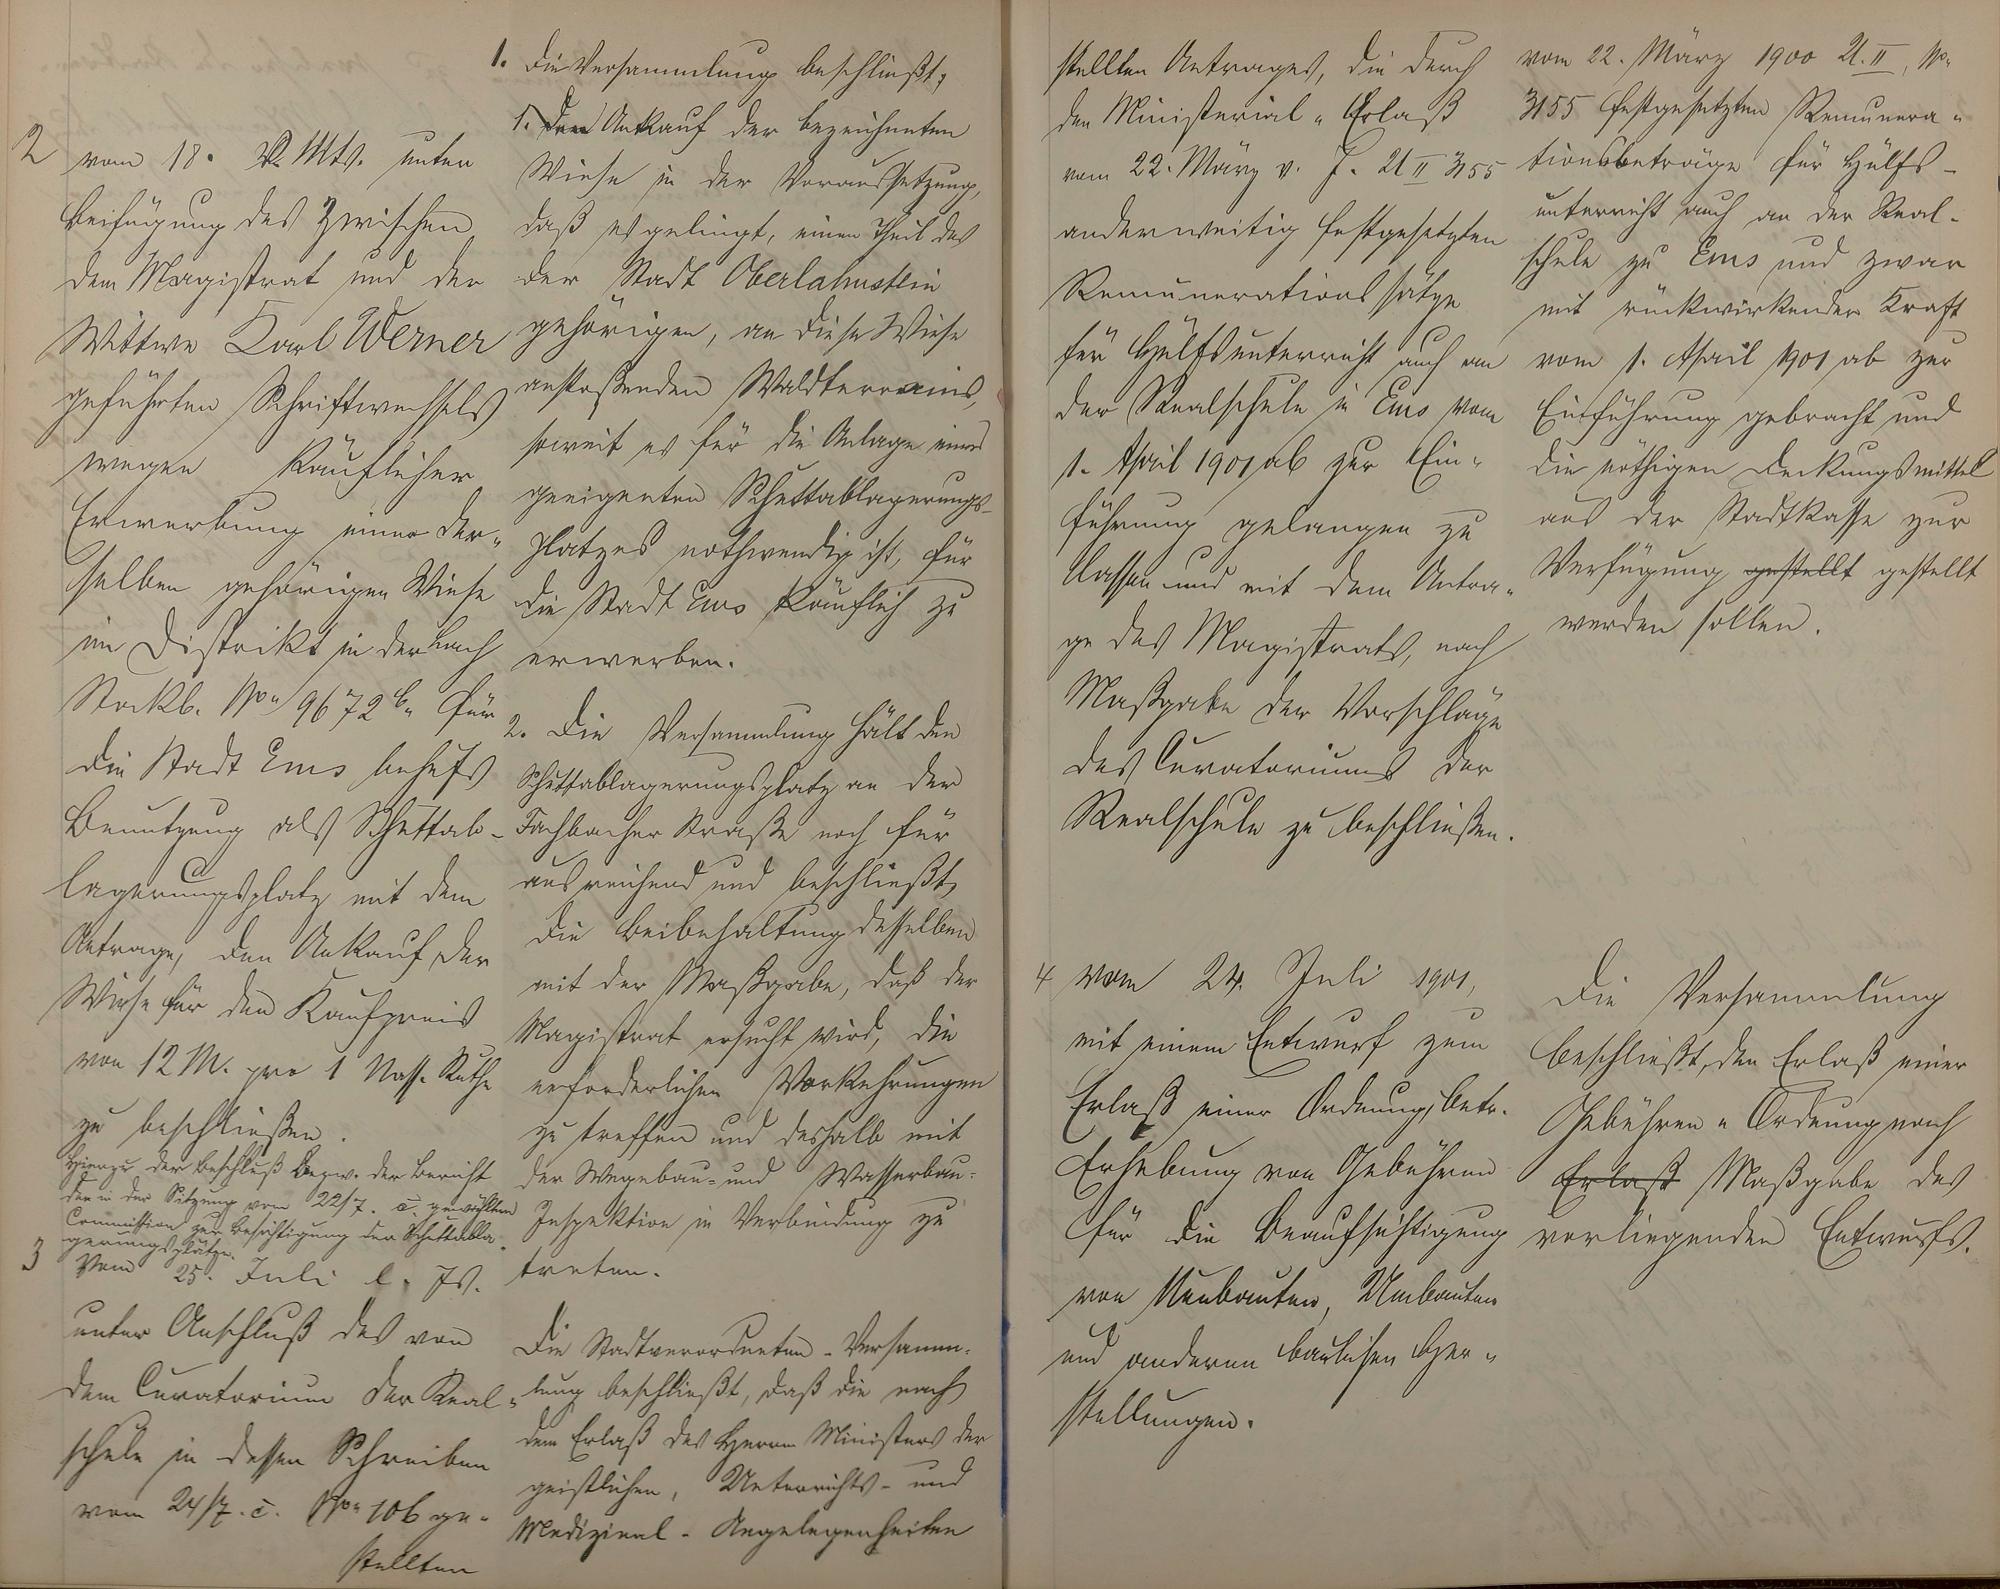 2
vom 18. v. Mts. unter
Beifügung des zwischen
dem Magistrat und der
Wittwe Karl Werner
geführten Schriftwechsels
wegen käuflicher
Erwerbung einer der-
selben gehörigen Wiese
im Distrikt in der Bach
Stockb. No. 9672b. für
die Stadt Ems behufs
Benutzung als Schuttab-
lagerungsplatz mit dem
Antrage, den Ankauf der
Wiese für den Kaufpreis
von 12 M. pro 1 Nass. Ruthe
zu beschließen.
Hierzu der Beschluß bezw. der Bericht
der in der Sitzung vom 22/7. c. gewählten
Commission zur Besichtigung der Schuttabla-
gerungsplätze.
3
Vom 25. Juli l. Js.
unter Anschluß des von
dem Curatorium der Real-
schule in dessen Schreiben
vom 24/7. c. No. 106 ge-
stellten
1. Die Versammlung beschließt,
1. den Ankauf der bezeichneten
Wiese in der Voraussetzung,
daß es gelingt, einen Theil des
der Stadt Oberlahnstein
gehörigen, an diese Wiese
anstoßenden Waldterrains,
soweit es für die Anlage eines
geeigneten Schuttablagerungs-
platzes nothwendig ist, für
die Stadt Ems käuflich zu
erwerben.
2. Die Versammlung hält den
Schuttablagerungsplatz an der
Fachbacher Straße noch für
ausreichend und beschließt,
die Beibehaltung desselben
mit der Maßgabe, daß der
Magistrat ersucht wird, die
erforderlichen Vorkehrungen
zu treffen und deshalb mit
der Wegebau- und Wasserbau-
Inspektion in Verbindung zu
treten.
Die Stadtverordneten-Versamm-
lung beschließt, daß die nach
dem Erlaß des Herrn Ministers der
geistlichen, Unterrichts- und
Medizinal-Angelegenheiten
stellten Antrages, die durch
den Ministerial-Erlaß
vom 22. März v. J. U II 3155
anderweitig festgesetzten
Remunerationssätze
für Hülfsunterricht auch an
der Realschule in Ems vom
1. April 1901 ab zur Ein-
führung gelangen zu
lassen und mit dem Antra-
ge des Magistrats, nach
Maßgabe der Vorschläge
des Curatoriums der
Realschule zu beschließen.
4
vom 24. Juli 1901,
mit einem Entwurf zum
Erlaß einer Ordnung, betr.
Erhebung von Gebühren
für die Beaufsichtigung
von Neubauten, Umbauten
und anderen baulichen Her-
stellungen.
vom 22. März 1900 U. II, No.
3155 festgesetzten Remunera-
tionsbeträge für Hülfs-
unterricht auch an der Real-
schule zu Ems und zwar
mit rückwirkender Kraft
vom 1. April 1901 ab zur
Einführung gebracht und
die nöthigen Deckungsmittel
aus der Stadtkasse zur
Verfügung gestellt gestellt
werden sollen.
Die Versammlung
beschließt, den Erlaß einer
Gebühren-Ordnung nach
Erlaß Maßgabe des
vorliegenden Entwurfs.